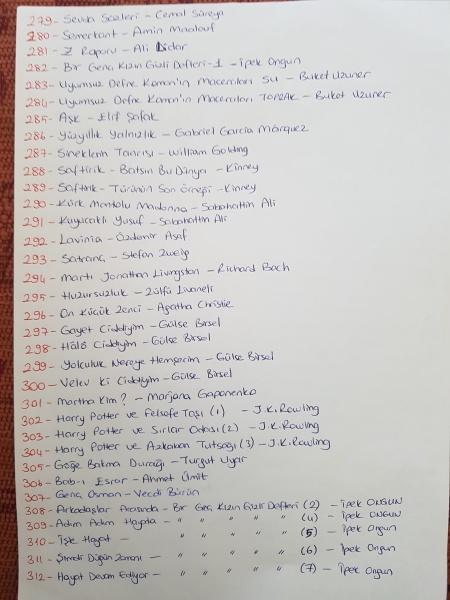 279- Sevda Sözleri - Cemal Süreya
280- Semerkant - Amin Maalouf
281- Z Raporu - Ali Lidar
282- Bir Genç Kızın Gizli Defteri-1 - İpek Ongun
283- Uyumsuz Defne Kaman'ın Maceraları SU - Buket Uzuner
284- Uyumsuz Defne Kaman'ın Maceraları TOPRAK - Buket Uzuner
285- Aşk - Elif Şafak
286- Yüzyıllık Yalnızlık - Gabriel Garcia Márquez
287- Sineklerin Tanrısı - William Golding
288- Saftirik - Batsın Bu Dünya - Kinney
289- Saftirik - Türünün Son Örneği - Kinney
290- Kürk Mantolu Madonna - Sabahattin Ali
291- Kuyucaklı Yusuf - Sabahattin Ali
292- Lavinia - Özdemir Asaf
293- Satranç - Stefan Zweig
294- Martı Jonathan Livingston - Richard Bach
295- Huzursuzluk - Zülfü Livaneli
296- On Küçük Zenci - Agatha Christie
297- Gayet Ciddiyim - Gülse Birsel
298- Hâlâ Ciddiyim - Gülse Birsel
299- Yolculuk Nereye Hemşerim - Gülse Birsel
300- Velev ki Ciddiyim - Gülse Birsel
301- Martha Kim? - Marjana Gaponenko
302- Harry Potter ve Felsefe Taşı (1) - J.K.Rowling
303- Harry Potter ve Sırlar Odası (2) - J.K.Rowling
304- Harry Potter ve Azkaban Tutsağı (3) - J.K.Rowling
305- Göğe Bakma Durağı - Turgut Uyar
306- Bab-ı Esrar - Ahmet Ümit
307- Genç Osman - Vecdi Bürün
308- Arkadaşlar Arasında - Bir Genç Kızın Gizli Defteri (2) - İpek ONGUN
309- Adım Adım Hayata - " " " " " (4) - İpek ONGUN
310- İşte Hayat - " " " " " (5) - İpek Ongun
311- Şimdi Düğün Zamanı - " " " " " (6) - İpek Ongun
312- Hayat Devam Ediyor - " " " " " (7) - İpek Ongun